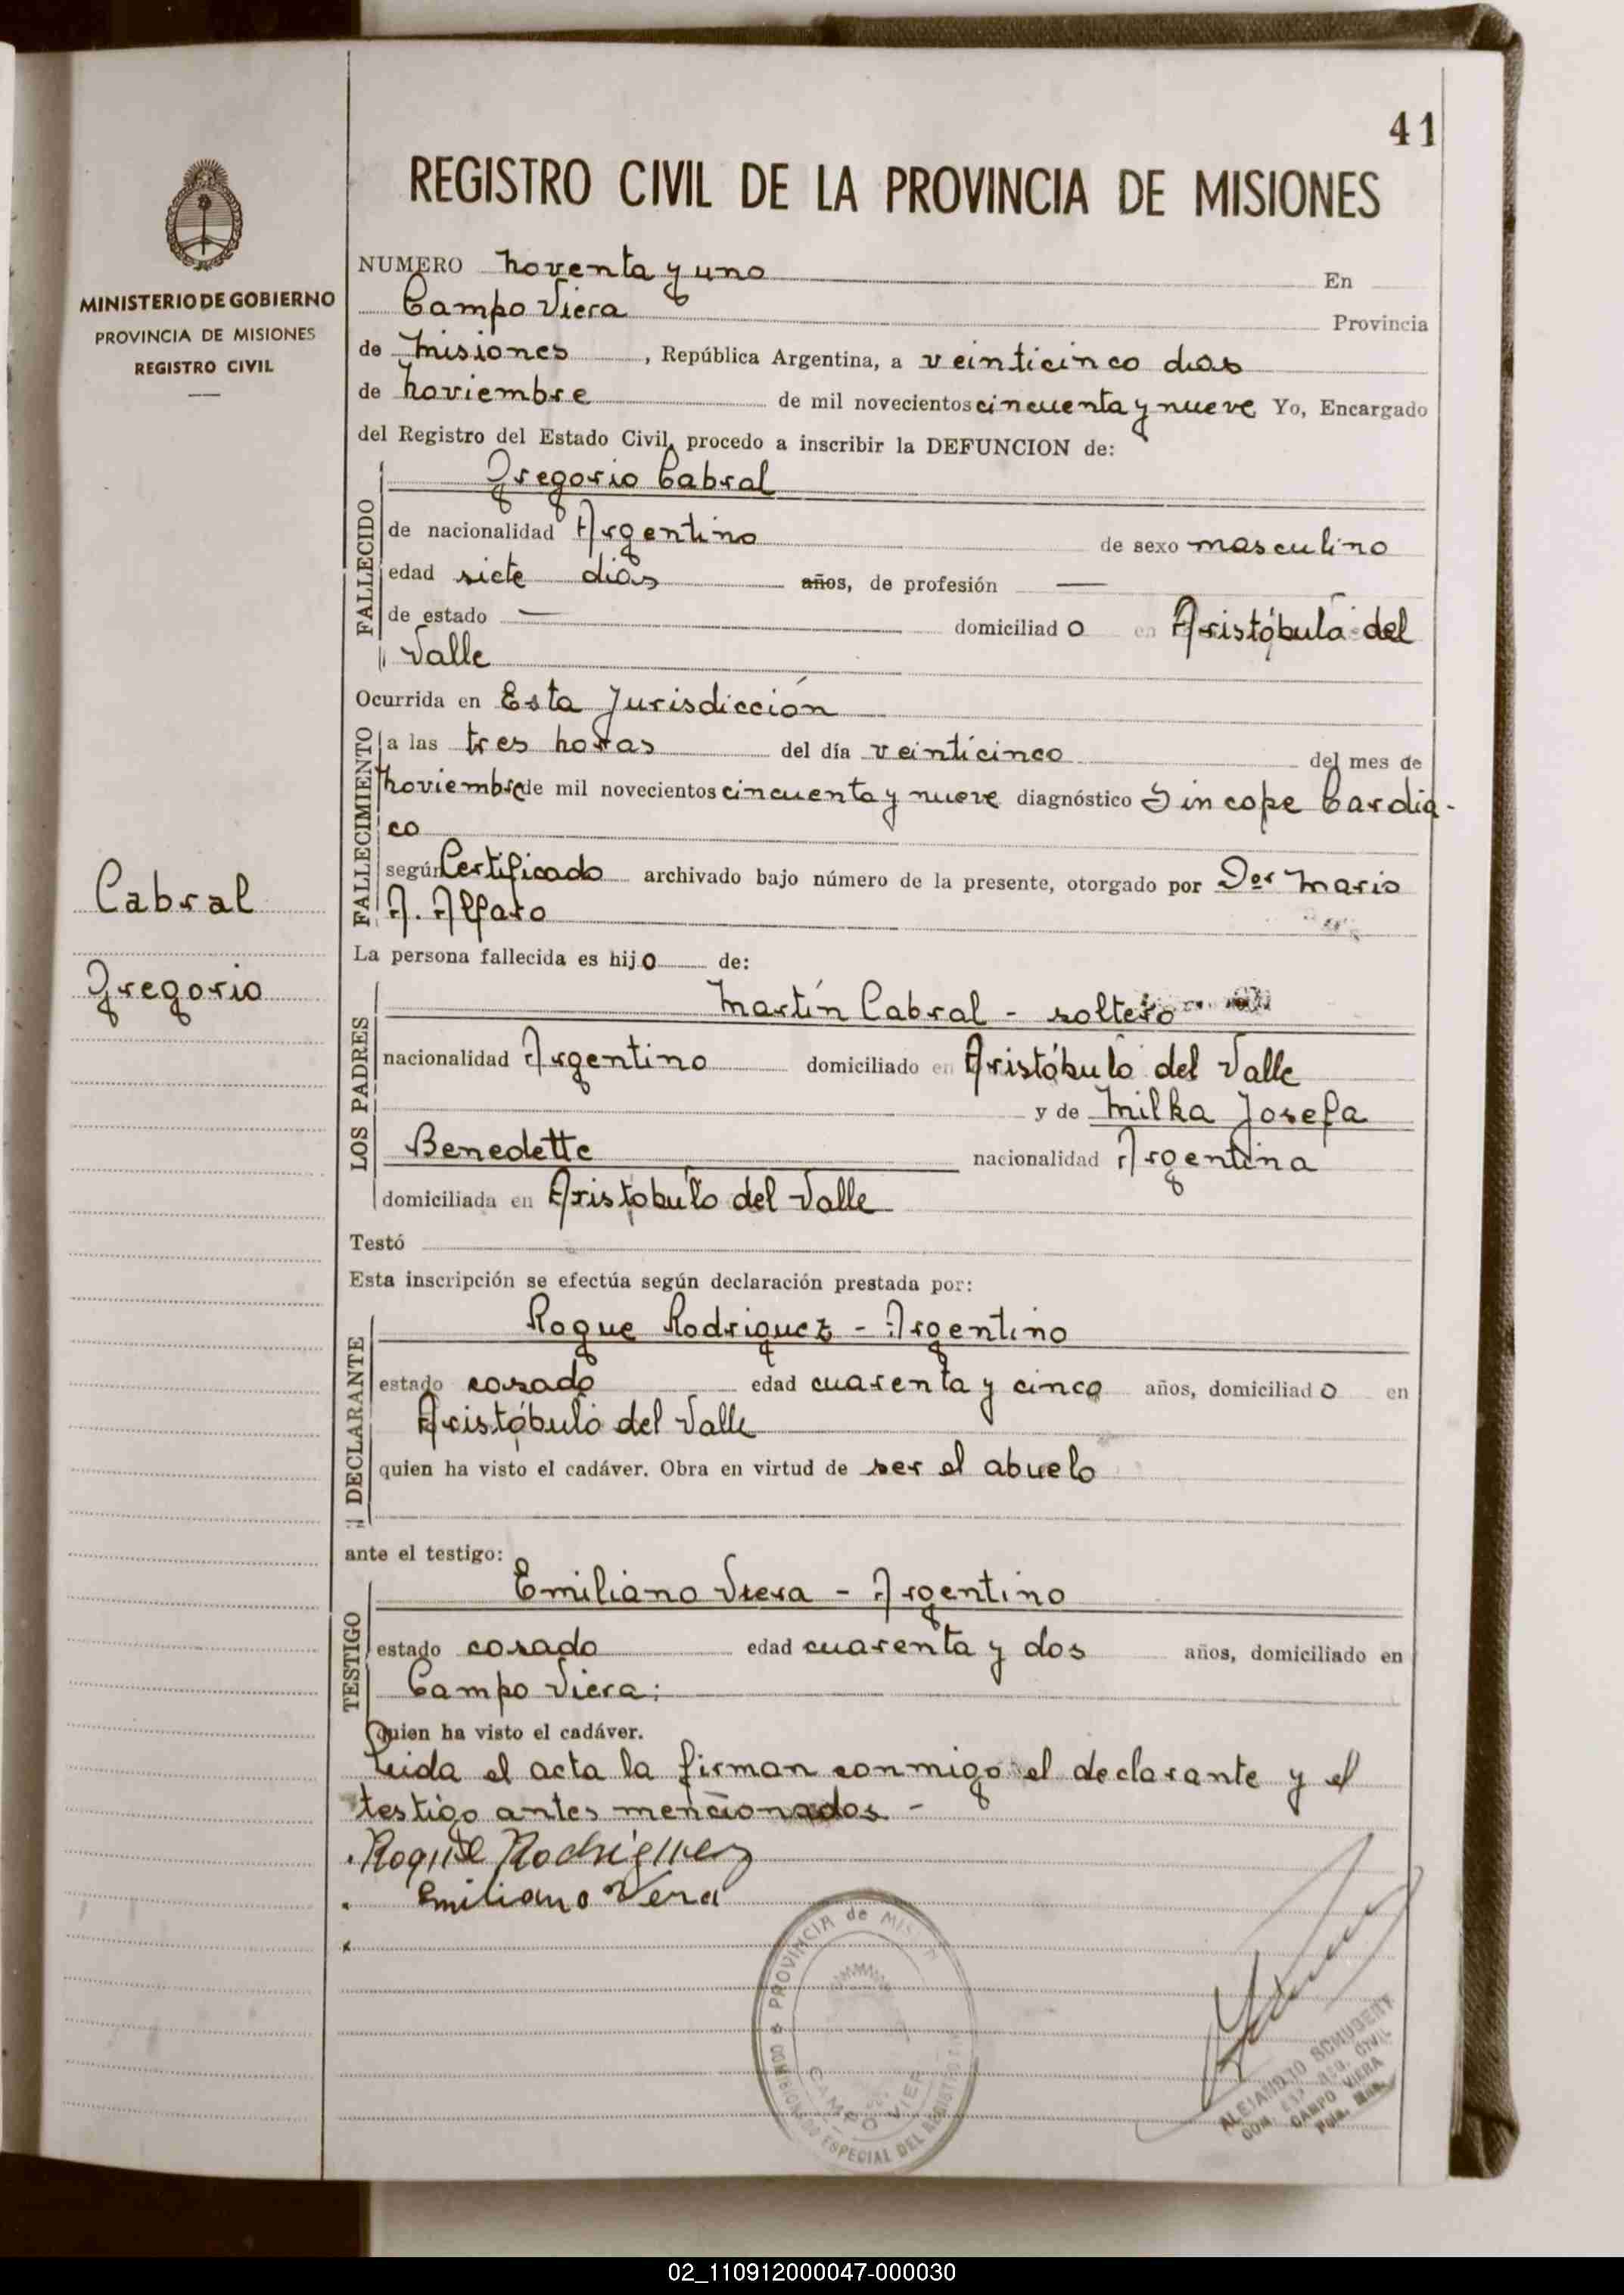 41
REGISTRO CIVIL DE LA PROVINCIA DE MISIONES
MINISTERIO DE GOBIERNO
PROVINCIA DE MISIONES
REGISTRO CIVIL
NUMERO Noventa y uno En
Campo Viera Provincia
de Misiones, República Argentina, a veinticinco dias
de Noviembre de mil novecientos cincuenta y nueve Yo, Encargado
del Registro del Estado Civil, procedo a inscribir la DEFUNCION de:
FALLECIDO
Gregorio Cabral
de nacionalidad Argentino de sexo masculino
edad siete dias años, de profesión —
de estado — domiciliado en Aristóbulo del
Valle
Ocurrida en Esta Jurisdicción
FALLECIMIENTO
a las tres horas del día veinticinco del mes de
Noviembre de mil novecientos cincuenta y nueve diagnóstico Sincope Cardia-
co
según Certificado archivado bajo número de la presente, otorgado por Dor Mario
A. Alfaro
Cabral
Gregorio
La persona fallecida es hijo de:
LOS PADRES
Martín Cabral - soltero
nacionalidad Argentino domiciliado en Aristóbulo del Valle
y de Milka Josefa
Benedette nacionalidad Argentina
domiciliada en Aristobulo del Valle
Testó
Esta inscripción se efectúa según declaración prestada por:
DECLARANTE
Roque Rodriguez - Argentino
estado casado edad cuarenta y cinco años, domiciliado en
Aristóbulo del Valle
quien ha visto el cadáver. Obra en virtud de ser el abuelo
ante el testigo:
TESTIGO
Emiliano Viera - Argentino
estado casado edad cuarenta y dos años, domiciliado en
Campo Viera;
Quien ha visto el cadáver.
Leida el acta la firman conmigo el declarante y el
testigo antes mencionados -
Roque Rodriguez
Emiliano Vera
PROVINCIA de MISIONES
CAMPO VIERA
ESPECIAL DEL
ALEJANDRO SCHUBERT
REG. CIVIL
CAMPO VIERA
Pcia. Mnes.
02_110912000047-000030